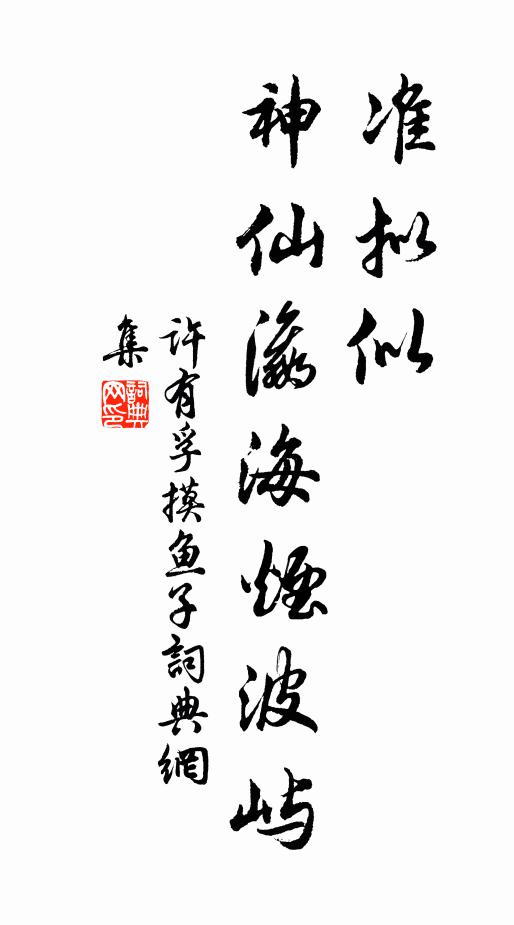 准拟似
神仙瀛海烟波屿
许有孚摸鱼子詞典網
集
詞典
网印